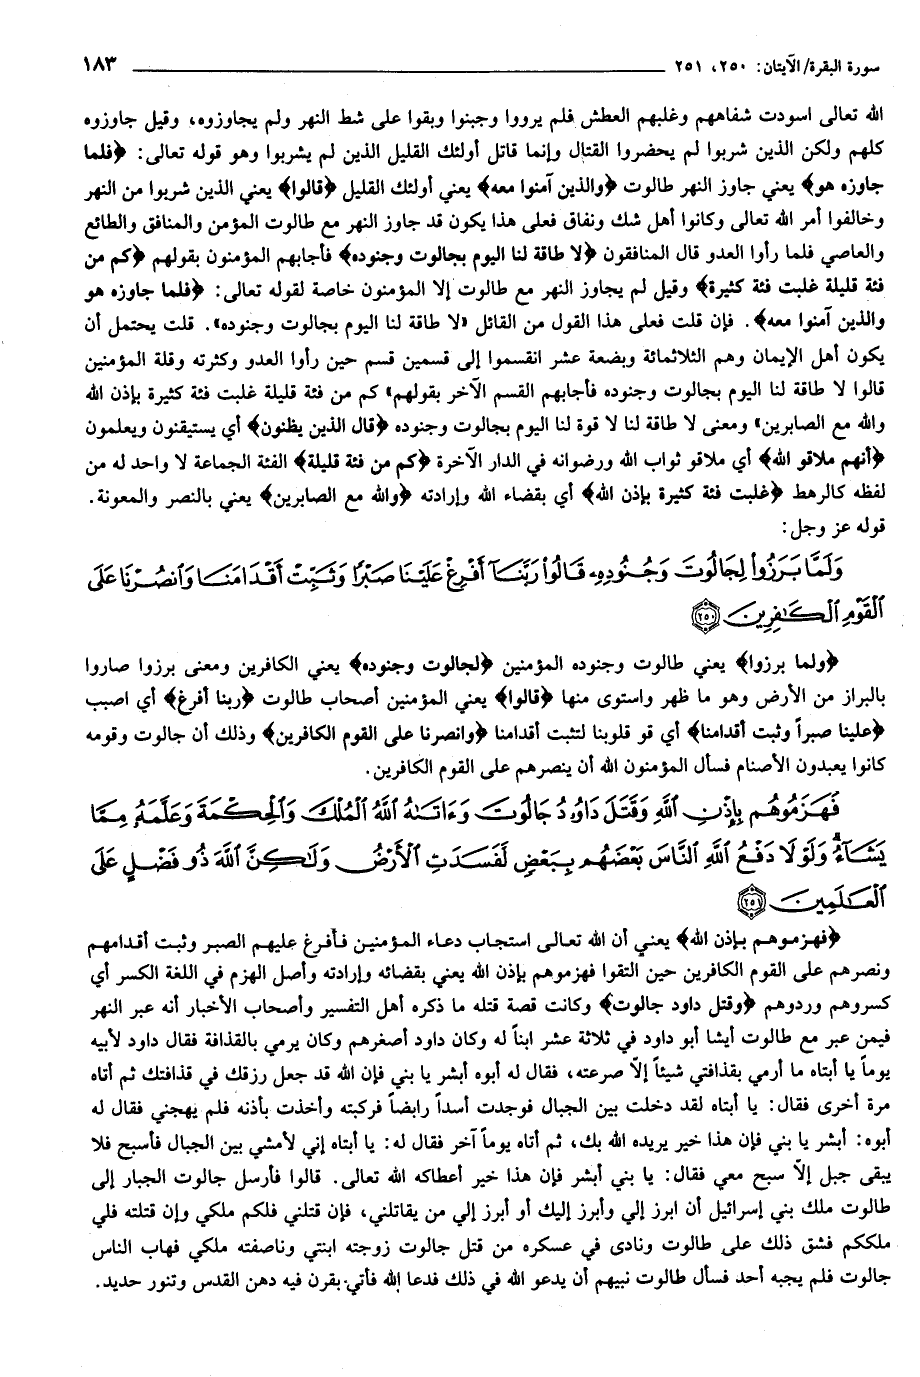 سورة البقرة/ الآيتان: ٢٥٠، ٢٥١ ١٨٣
الله تعالى اسودت شفاههم وغلبهم العطش فلم يرووا وجبنوا وبقوا على شط النهر ولم يجاوزوه، وقيل جاوزوه
كلهم ولكن الذين شربوا لم يحضروا القتال وإنما قاتل أولئك القليل الذين لم يشربوا وهو قوله تعالى: ﴿فلما
جاوزه هو﴾ يعني جاوز النهر طالوت ﴿والذين آمنوا معه﴾ يعني أولئك القليل ﴿قالوا﴾ يعني الذين شربوا من النهر
وخالفوا أمر الله تعالى وكانوا أهل شك ونفاق فعلى هذا يكون قد جاوز النهر مع طالوت المؤمن والمنافق والطائع
والعاصي فلما رأوا العدو قال المنافقون ﴿لا طاقة لنا اليوم بجالوت وجنوده﴾ فأجابهم المؤمنون بقولهم ﴿كم من
فئة قليلة غلبت فئة كثيرة﴾ وقيل لم يجاوز النهر مع طالوت إلا المؤمنون خاصة لقوله تعالى: ﴿فلما جاوزه هو
والذين آمنوا معه﴾. فإن قلت فعلى هذا القول من القائل «لا طاقة لنا اليوم بجالوت وجنوده». قلت يحتمل أن
يكون أهل الإيمان وهم الثلاثمائة وبضعة عشر انقسموا إلى قسمين قسم حين رأوا العدو وكثرته وقلة المؤمنين
قالوا لا طاقة لنا اليوم بجالوت وجنوده فأجابهم القسم الآخر بقولهم» كم من فئة قليلة غلبت فئة كثيرة بإذن الله
والله مع الصابرين» ومعنى لا طاقة لنا لا قوة لنا اليوم بجالوت وجنوده ﴿قال الذين يظنون﴾ أي يستيقنون ويعلمون
﴿أنهم ملاقو الله﴾ أي ملاقو ثواب الله ورضوانه في الدار الآخرة ﴿كم من فئة قليلة﴾ الفئة الجماعة لا واحد له من
لفظه كالرهط ﴿غلبت فئة كثيرة بإذن الله﴾ أي بقضاء الله وإرادته ﴿والله مع الصابرين﴾ يعني بالنصر والمعونة.
قوله عز وجل:
وَلَمَّا بَرَزُوا۟ لِجَالُوتَ وَجُنُودِهِۦ قَالُوا۟ رَبَّنَآ أَفْرِغْ عَلَيْنَا صَبْرًا وَثَبِّتْ أَقْدَامَنَا وَٱنصُرْنَا عَلَى
ٱلْقَوْمِ ٱلْكَـٰفِرِينَ ٢٥٠
﴿ولما برزوا﴾ يعني طالوت وجنوده المؤمنين ﴿لجالوت وجنوده﴾ يعني الكافرين ومعنى برزوا صاروا
بالبراز من الأرض وهو ما ظهر واستوى منها ﴿قالوا﴾ يعني المؤمنين أصحاب طالوت ﴿ربنا أفرغ﴾ أي اصبب
﴿علينا صبراً وثبت أقدامنا﴾ أي قو قلوبنا لتثبت أقدامنا ﴿وانصرنا على القوم الكافرين﴾ وذلك أن جالوت وقومه
كانوا يعبدون الأصنام فسأل المؤمنون الله أن ينصرهم على القوم الكافرين.
فَهَزَمُوهُم بِإِذْنِ ٱللَّهِ وَقَتَلَ دَاوُۥدُ جَالُوتَ وَءَاتَىٰهُ ٱللَّهُ ٱلْمُلْكَ وَٱلْحِكْمَةَ وَعَلَّمَهُۥ مِمَّا
يَشَآءُ ۗ وَلَوْلَا دَفْعُ ٱللَّهِ ٱلنَّاسَ بَعْضَهُم بِبَعْضٍ لَّفَسَدَتِ ٱلْأَرْضُ وَلَـٰكِنَّ ٱللَّهَ ذُو فَضْلٍ عَلَى
ٱلْعَـٰلَمِينَ ٢٥١
﴿فهزموهم بإذن الله﴾ يعني أن الله تعالى استجاب دعاء المؤمنين فأفرغ عليهم الصبر وثبت أقدامهم
ونصرهم على القوم الكافرين حين التقوا فهزموهم بإذن الله يعني بقضائه وإرادته وأصل الهزم في اللغة الكسر أي
كسروهم وردوهم ﴿وقتل داود جالوت﴾ وكانت قصة قتله ما ذكره أهل التفسير وأصحاب الأخبار أنه عبر النهر
فيمن عبر مع طالوت أيشا أبو داود في ثلاثة عشر ابناً له وكان داود أصغرهم وكان يرمي بالقذافة فقال داود لأبيه
يوماً يا أبتاه ما أرمي بقذافتي شيئاً إلاّ صرعته، فقال له أبوه أبشر يا بني فإن الله قد جعل رزقك في قذافتك ثم أتاه
مرة أخرى فقال: يا أبتاه لقد دخلت بين الجبال فوجدت أسداً رابضاً فركبته وأخذت بأذنه فلم يهجني فقال له
أبوه: أبشر يا بني فإن هذا خير يريده الله بك، ثم أتاه يوماً آخر فقال له: يا أبتاه إني لأمشي بين الجبال فأسبح فلا
يبقى جبل إلاّ سبح معي فقال: يا بني أبشر فإن هذا خير أعطاكه الله تعالى. قالوا فأرسل جالوت الجبار إلى
طالوت ملك بني إسرائيل أن ابرز إلي وأبرز إليك أو أبرز إلي من يقاتلني، فإن قتلني فلكم ملكي وإن قتلته فلي
ملككم فشق ذلك على طالوت ونادى في عسكره من قتل جالوت زوجته ابنتي وناصفته ملكي فهاب الناس
جالوت فلم يجبه أحد فسأل طالوت نبيهم أن يدعو الله في ذلك فدعا الله فأتي بقرن فيه دهن القدس وتنور حديد.